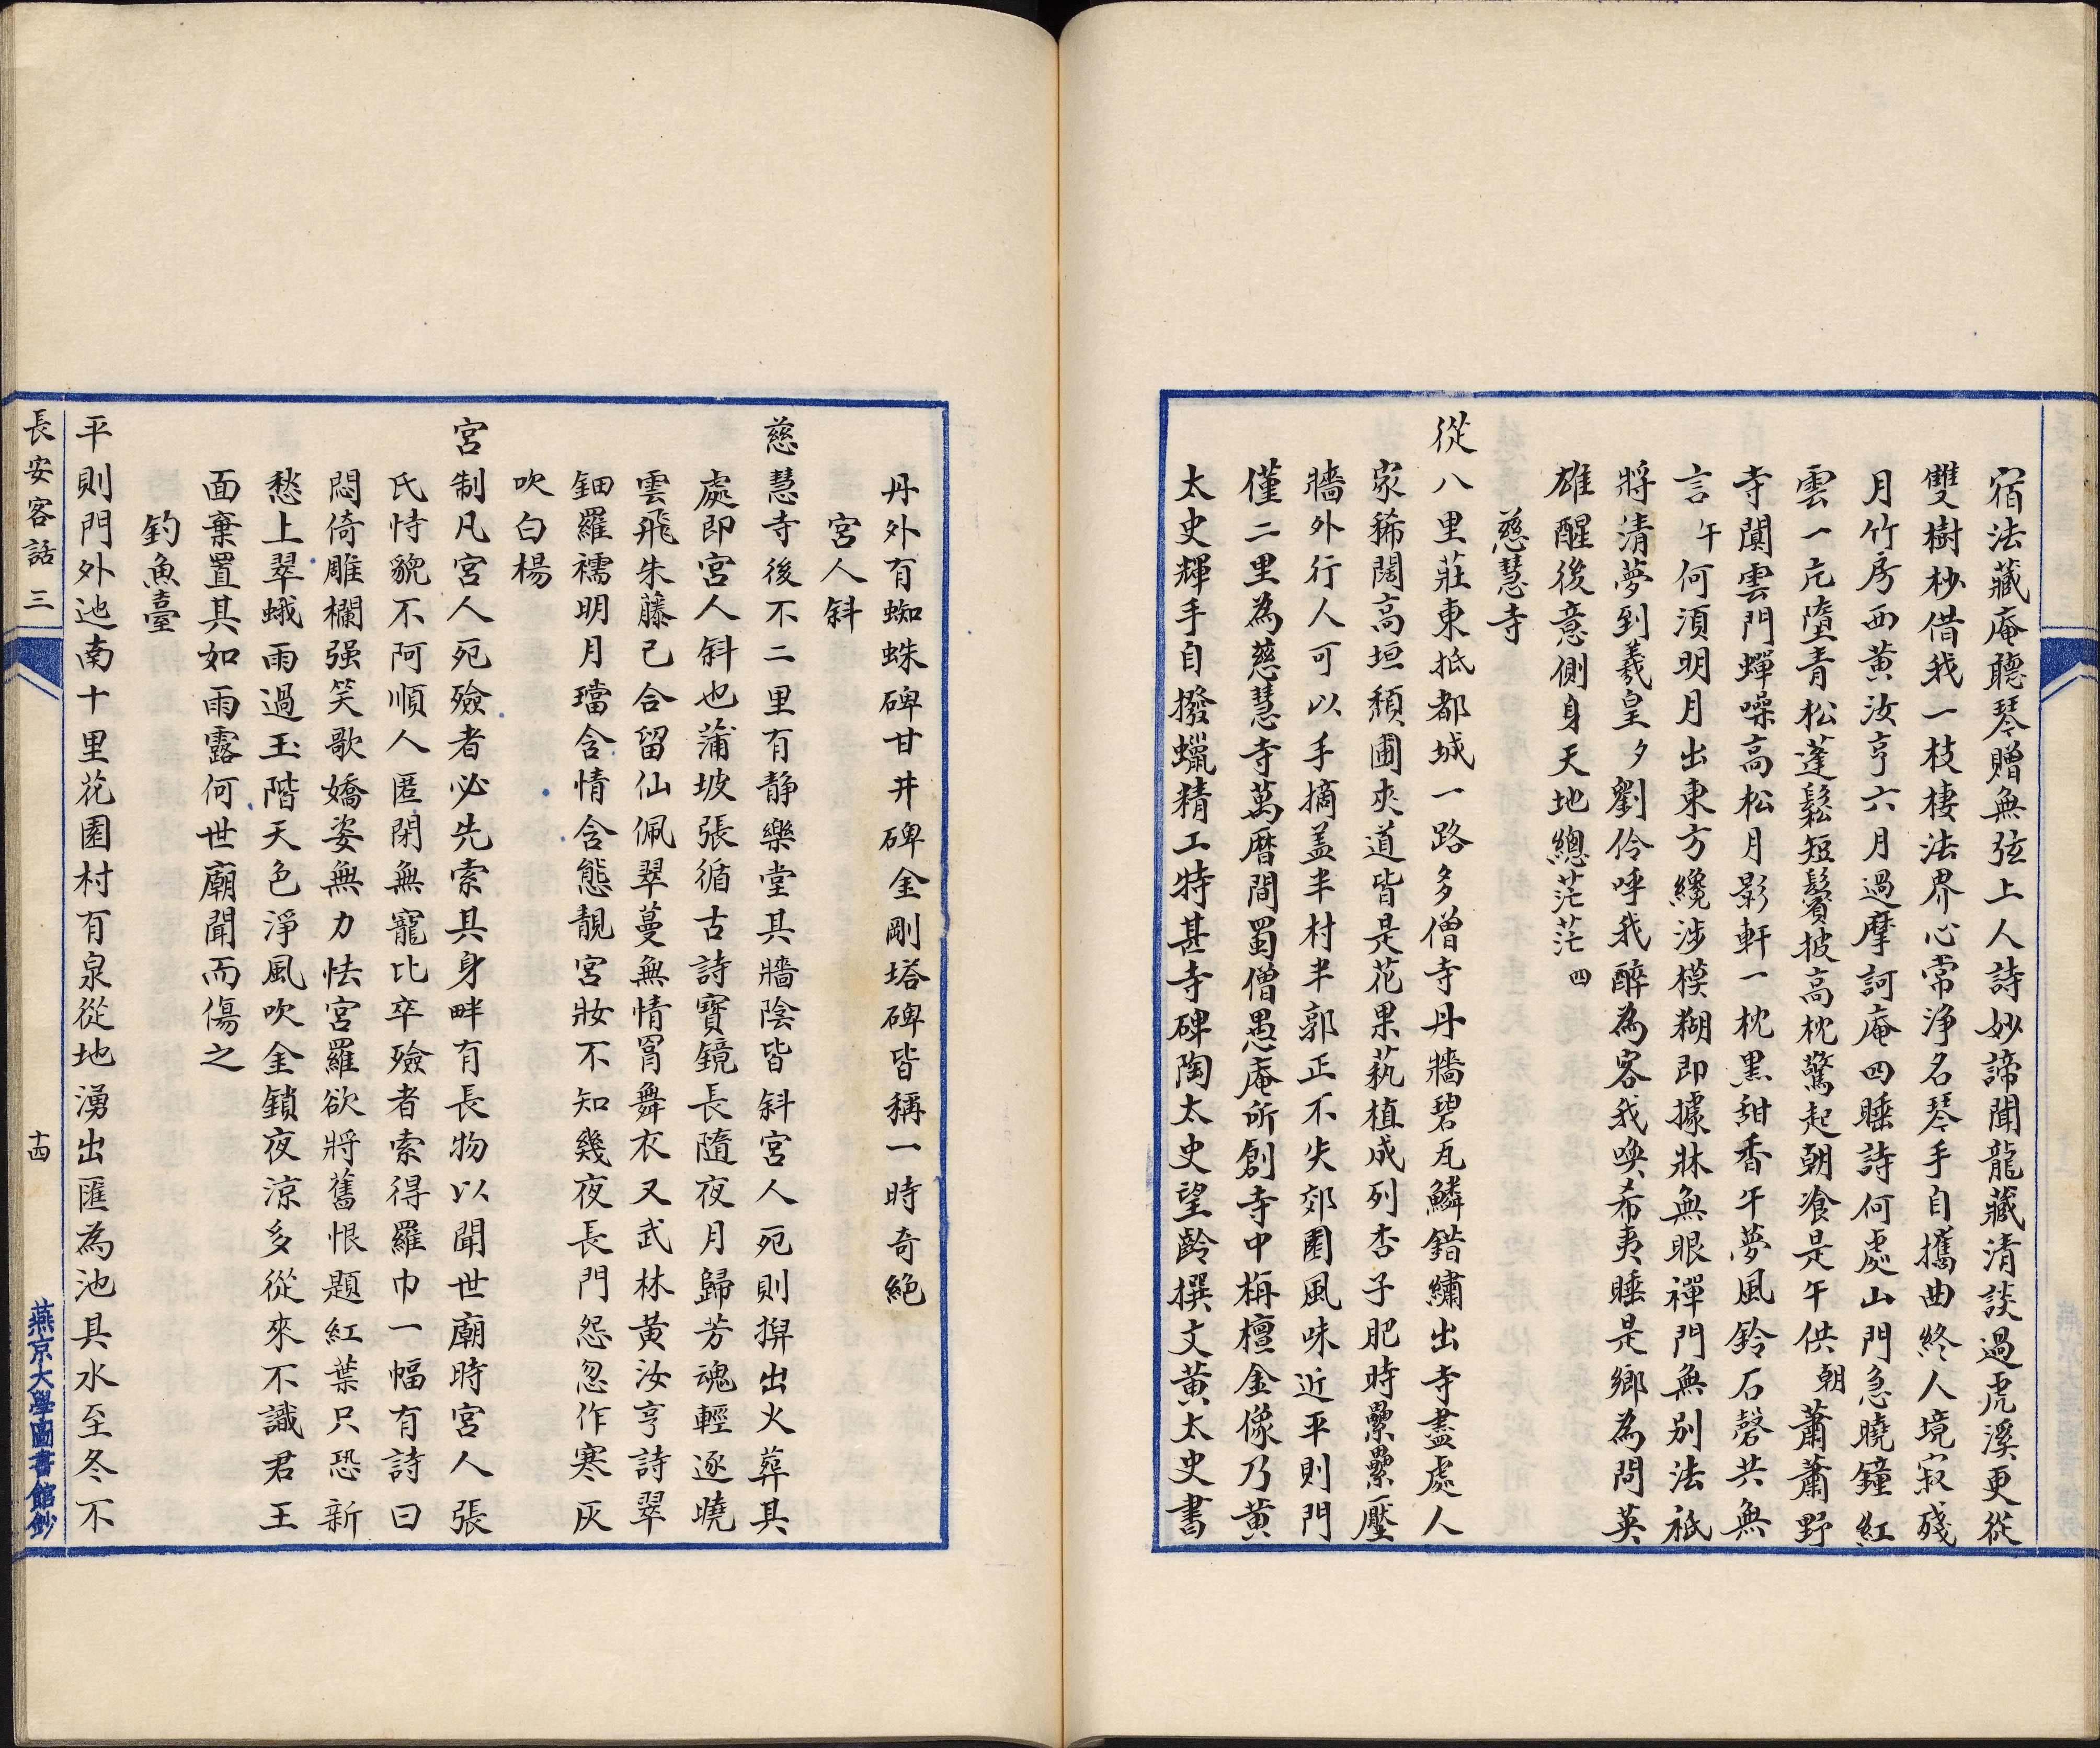 宿法藏庵聽琴贈無弦上人詩妙諦聞龍藏清談過虎溪更從
雙樹杪借我一枝棲法界心常淨名琴手自攜曲終人境寂殘
月竹房西黃汝亨六月過摩訶庵四睡詩何處山門急曉鐘紅
雲一片墮青松蓬鬆短鬢披高枕驚起朝飡是午供朝蕭蕭野
寺闃雲門蟬噪高松月影軒一枕黑甜香午夢風鈴石磬共無
言午何須明月出東方纔涉模糊即據牀無眼禪門無別法祗
將清夢到羲皇夕劉伶呼我醉為客我喚希夷睡是鄉為問英
雄醒後意側身天地總茫茫四
慈慧寺
從八里莊東抵都城一路多僧寺丹牆碧瓦鱗錯繡出寺盡處人
家稀闊高垣頹圃夾道皆是花果蓺植成列杏子肥時纍纍壓
牆外行人可以手摘盖半村半郭正不失郊園風味近平則門
僅二里為慈慧寺萬曆間蜀僧愚庵所創寺中栴檀金像乃黃
太史輝手自撥蠟精工特甚寺碑陶太史望齡撰文黃太史書
丹外有蜘蛛碑甘井碑金剛塔碑皆稱一時奇絕
宮人斜
慈慧寺後不二里有靜樂堂其牆陰皆斜宮人死則搿出火葬其
處即宮人斜也蒲坡張循古詩寶鏡長隨夜月歸芳魂輕逐曉
雲飛朱藤已合留仙佩翠蔓無情罥舞衣又武林黃汝亨詩翠
鈿羅襦明月璫含情含態靚宮妝不知幾夜長門怨忽作寒灰
吹白楊
宮制凡宮人死殮者必先索其身畔有長物以聞世廟時宮人張
氏恃貌不阿順人匿閉無寵比卒殮者索得羅巾一幅有詩曰
悶倚雕欄强笑歌嬌姿無力怯宮羅欲將舊恨題紅葉只恐新
愁上翠蛾雨過玉階天色淨風吹金鎖夜涼多從來不識君王
面棄置其如雨露何世廟聞而傷之
釣魚臺
平則門外迆南十里花園村有泉從地湧出匯為池其水至冬不
長安客話 三
十四
燕京大學圖書館鈔